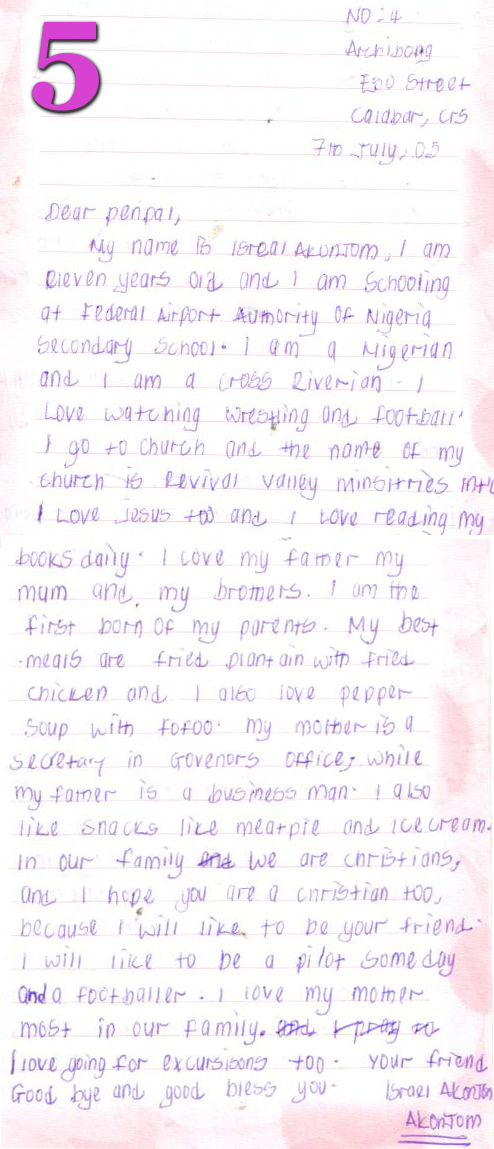 5
NO: 4
Archibong
Eso Street
Calabar, CRS
7th July, 05
Dear penpal,
My name is Isreal Akontom, I am
Eleven years old and I am Schooling
at Federal Airport Authority Of Nigeria
Secondary School. I am a Nigerian
and I am a cross Riverian. I
Love watching wrestling and football.
I go to church and the name of my
church is Revival valley minsitries
I Love Jesus too and I love reading my
books daily. I love my father my
mum and, my brothers. I am the
first born of my parents. My best
meals are fried plantain with fried
chicken and I also love pepper
soup with fofoo. My mother is a
secretary in Govenors office, while
my father is a business man. I also
like snacks like meatpie and icecream.
In our family we are christians,
and I hope you are a christian too,
because I will like to be your friend.
I will like to be a pilot someday
and a footballer. I love my mother
most in our family. and I pray
I love going for excursisons too. Your friend
Good bye and good bless you. Israel Akontom
Akontom